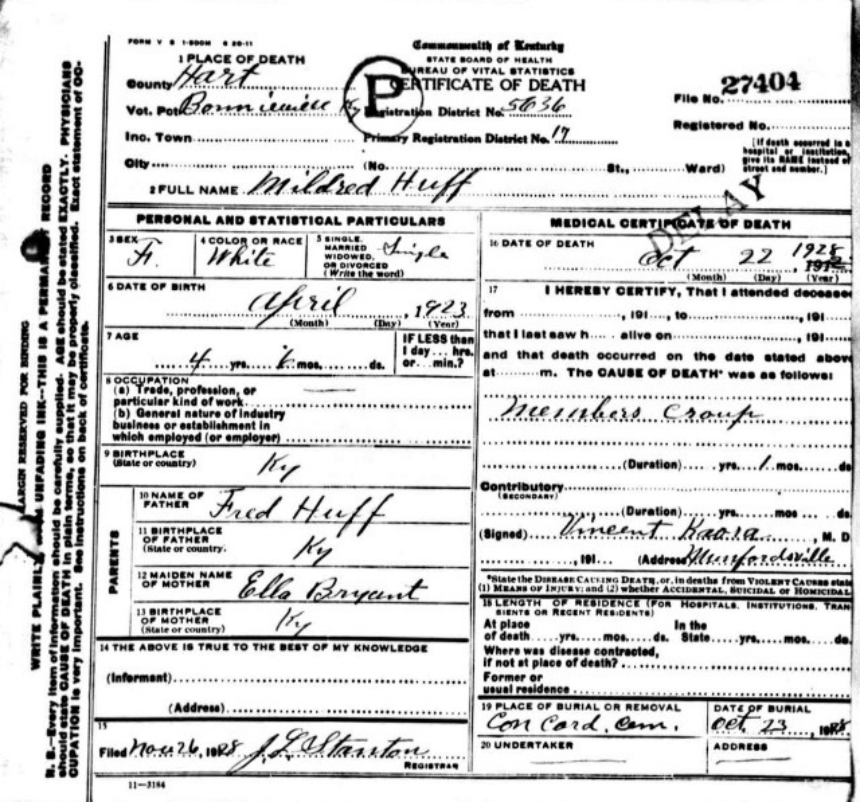 FORM V S 1-500M 6 20-11
Commonwealth of Kentucky
STATE BOARD OF HEALTH
BUREAU OF VITAL STATISTICS
CERTIFICATE OF DEATH
P
1 PLACE OF DEATH
County Hart
Vot. Pct Bonnieville Ky
Registration District No. 5636
File No. 27404
Inc. Town
Primary Registration District No. 17
Registered No.
City (No. St., Ward)
[If death occurred in a
hospital or institution,
give its NAME instead of
street and number.]
2 FULL NAME Mildred Huff
DELAY
PERSONAL AND STATISTICAL PARTICULARS
3 SEX F.
4 COLOR OR RACE White
5 SINGLE, MARRIED WIDOWED, OR DIVORCED (Write the word) Single
6 DATE OF BIRTH
April , 1923
(Month) (Day) (Year)
7 AGE
4 yrs. 6 mos. ds.
IF LESS than
1 day ... hrs.
or ... min.?
8 OCCUPATION
(a) Trade, profession, or
particular kind of work
(b) General nature of industry
business or establishment in
which employed (or employer)
9 BIRTHPLACE
(State or country) Ky
PARENTS
10 NAME OF FATHER Fred Huff
11 BIRTHPLACE OF FATHER (State or country) Ky
12 MAIDEN NAME OF MOTHER Ella Bryant
13 BIRTHPLACE OF MOTHER (State or country) Ky
14 THE ABOVE IS TRUE TO THE BEST OF MY KNOWLEDGE
(Informant)
(Address)
15
Filed Nov 26, 1928 J. L. Stanton
REGISTRAR
11-3184
MEDICAL CERTIFICATE OF DEATH
16 DATE OF DEATH
Oct 22, 1928
(Month) (Day) (Year)
17 I HEREBY CERTIFY, That I attended deceased
from , 191 , to , 191
that I last saw h alive on , 191
and that death occurred on the date stated above
at m. The CAUSE OF DEATH* was as follows:
Members Croup
(Duration) yrs. 1 mos. ds
Contributory
(SECONDARY)
(Duration) yrs. mos ds.
(Signed) Vincent , M. D
, 191 (Address) Munfordsville
*State the DISEASE CAUSING DEATH, or, in deaths from VIOLENT CAUSES state
(1) MEANS OF INJURY; and (2) whether ACCIDENTAL, SUICIDAL OR HOMICIDAL
18 LENGTH OF RESIDENCE (FOR HOSPITALS, INSTITUTIONS, TRAN-
SIENTS OR RECENT RESIDENTS)
At place In the
of death yrs. mos. ds. State yrs. mos. ds
Where was disease contracted,
if not at place of death?
Former or
usual residence
19 PLACE OF BURIAL OR REMOVAL
Con Cord. Cem.
DATE OF BURIAL
Oct. 23, 1928
20 UNDERTAKER
ADDRESS
MARGIN RESERVED FOR BINDING
WRITE PLAINLY UNFADING INK--THIS IS A PERMANENT RECORD
N. B.--Every item of information should be carefully supplied. AGE should be stated EXACTLY. PHYSICIANS
should state CAUSE OF DEATH in plain terms, so that it may be properly classified. Exact statement of OC-
CUPATION is very important. See instructions on back of certificate.